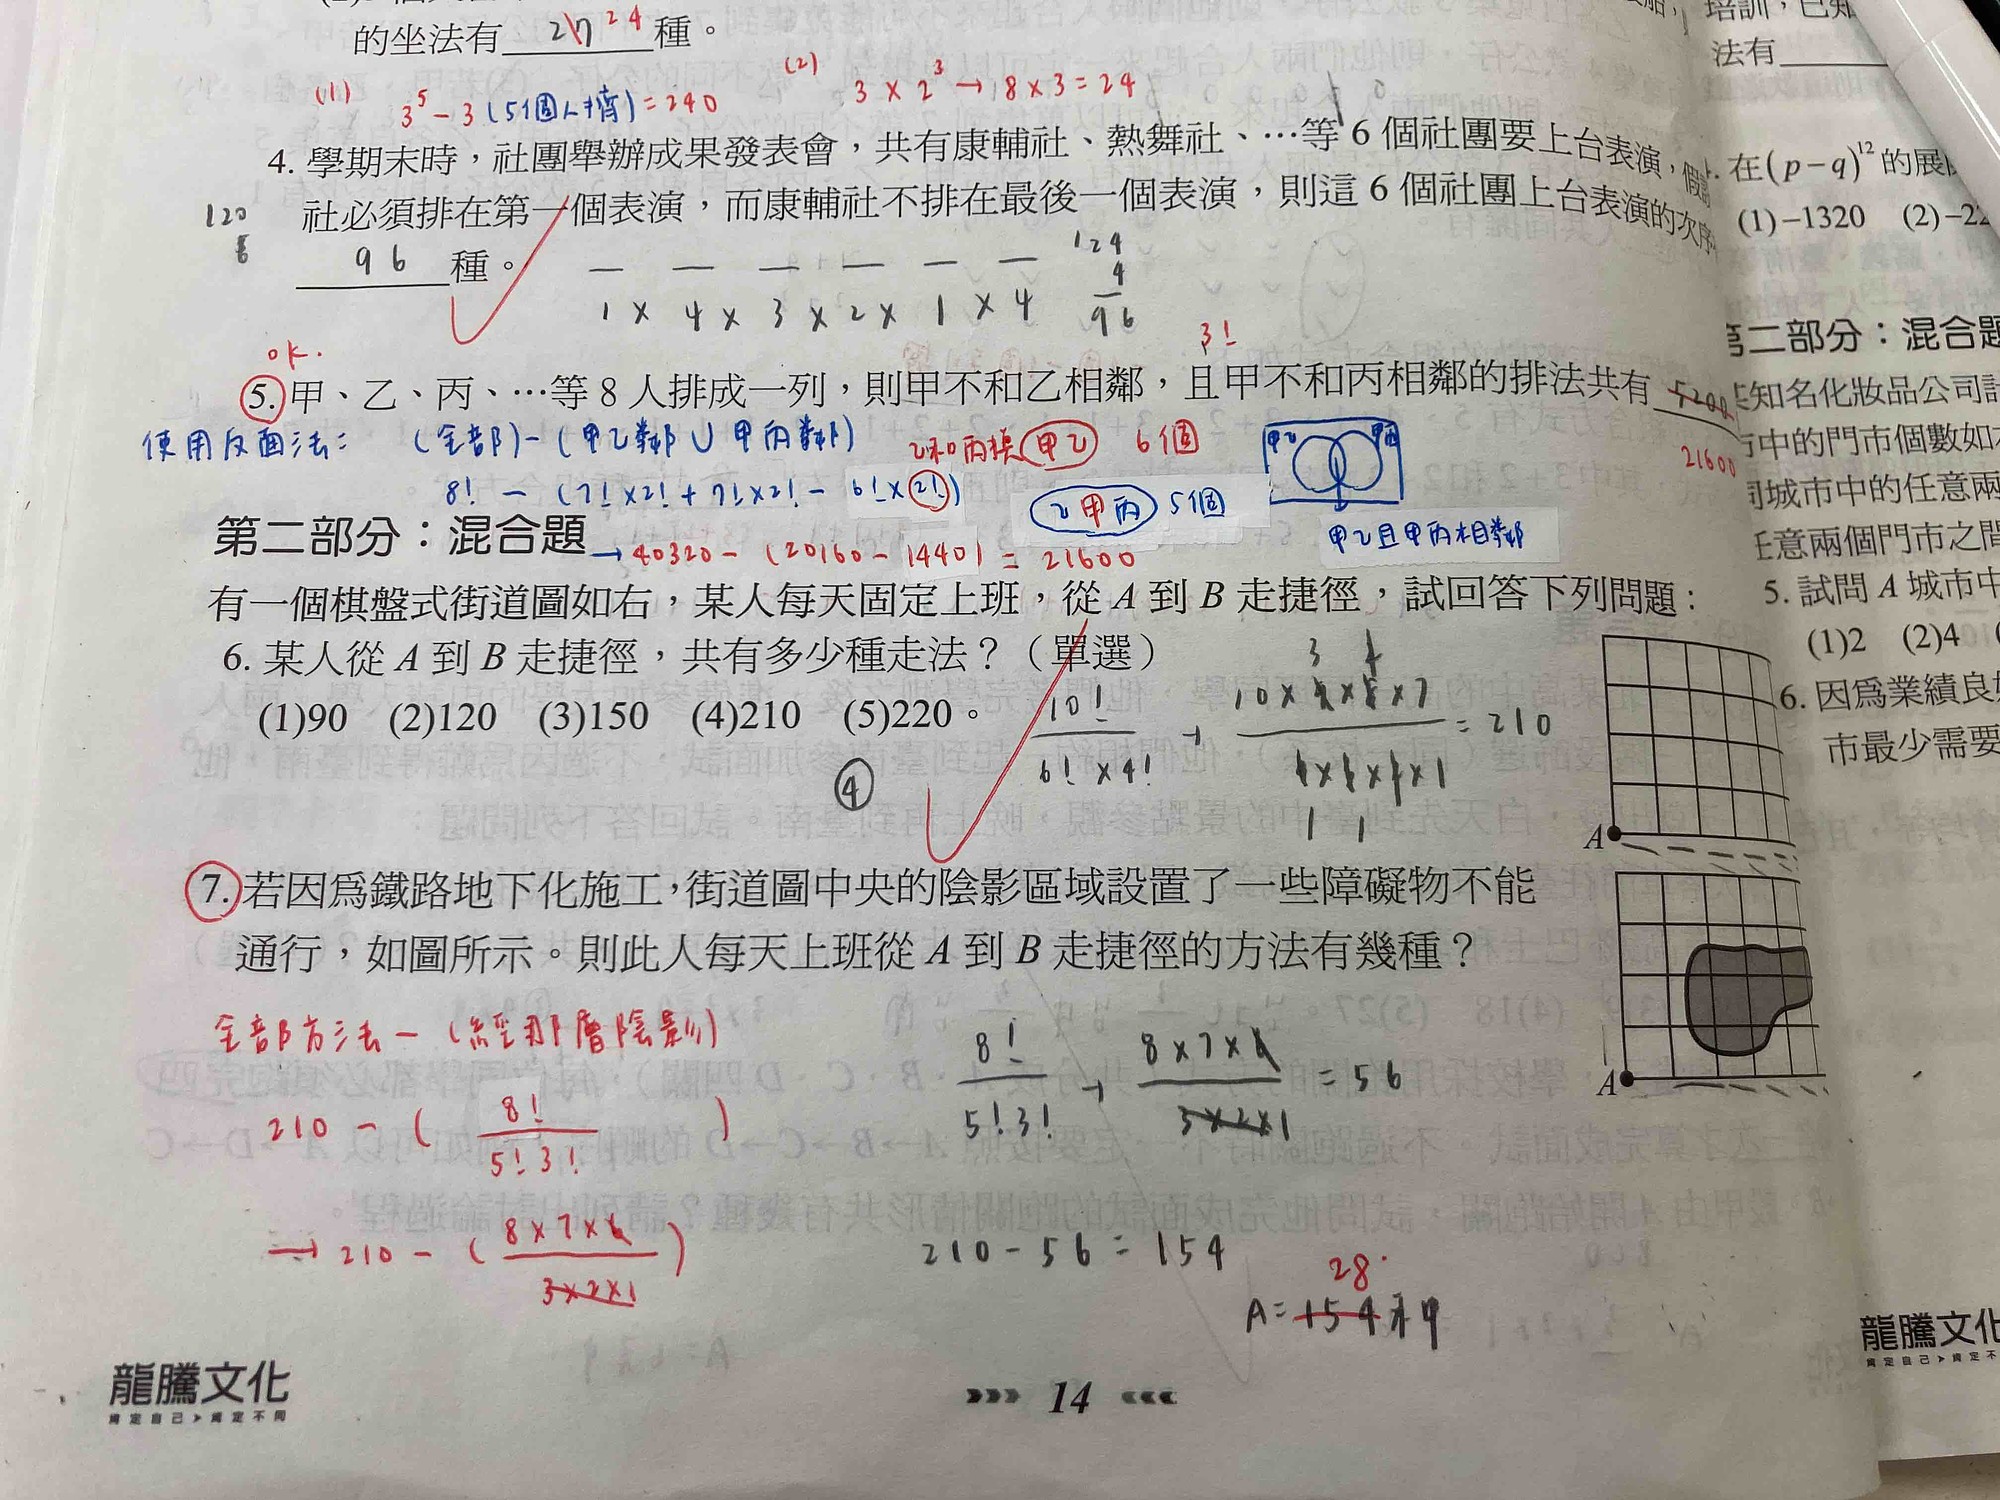 的坐法有 27 24 種。
培訓，已知
法有
(1) 3⁵ - 3 (5個人擠) = 240
(2) 3 × 2³ → 8 × 3 = 24
4. 學期末時，社團舉辦成果發表會，共有康輔社、熱舞社、…等 6 個社團要上台表演，假設
社必須排在第一個表演，而康輔社不排在最後一個表演，則這 6 個社團上台表演的次序
120
96 種。
1 × 4 × 3 × 2 × 1 × 4
124
4
96
ok.
3!
5. 甲、乙、丙、…等 8 人排成一列，則甲不和乙相鄰，且甲不和丙相鄰的排法共有 5200
21600
使用反面法: (全部) - (甲乙鄰 ∪ 甲丙鄰)
乙和丙換 甲乙 6個
甲乙 甲丙
8! - (7!×2! + 7!×2! - 6!×2!)
乙甲丙 5個
甲乙且甲丙相鄰
第二部分：混合題
→ 40320 - (20160 - 1440) = 21600
有一個棋盤式街道圖如右，某人每天固定上班，從 A 到 B 走捷徑，試回答下列問題：
6. 某人從 A 到 B 走捷徑，共有多少種走法？（單選）
(1)90 (2)120 (3)150 (4)210 (5)220。
④
3 1
10! / 6! × 4! → 10 × 9 × 8 × 7 / 4 × 3 × 2 × 1 = 210
1 1
A
7. 若因為鐵路地下化施工，街道圖中央的陰影區域設置了一些障礙物不能
通行，如圖所示。則此人每天上班從 A 到 B 走捷徑的方法有幾種？
A
全部方法 - (經那層陰影)
210 - ( 8! / 5! 3! )
8! / 5! 3! → 8 × 7 × 6 / 3 × 2 × 1 = 56
→ 210 - ( 8 × 7 × 6 / 3 × 2 × 1 )
210 - 56 = 154
28
A = 154 種
龍騰文化
肯定自己 ➤ 肯定不同
14
. 在(p－q)¹² 的展
(1)－1320 (2)－22
第二部分：混合題
某知名化妝品公司計
市中的門市個數如
司城市中的任意兩
任意兩個門市之間
5. 試問 A 城市中
(1)2 (2)4
6. 因為業績良好
市最少需要
龍騰文化
肯定自己 ➤ 肯定不